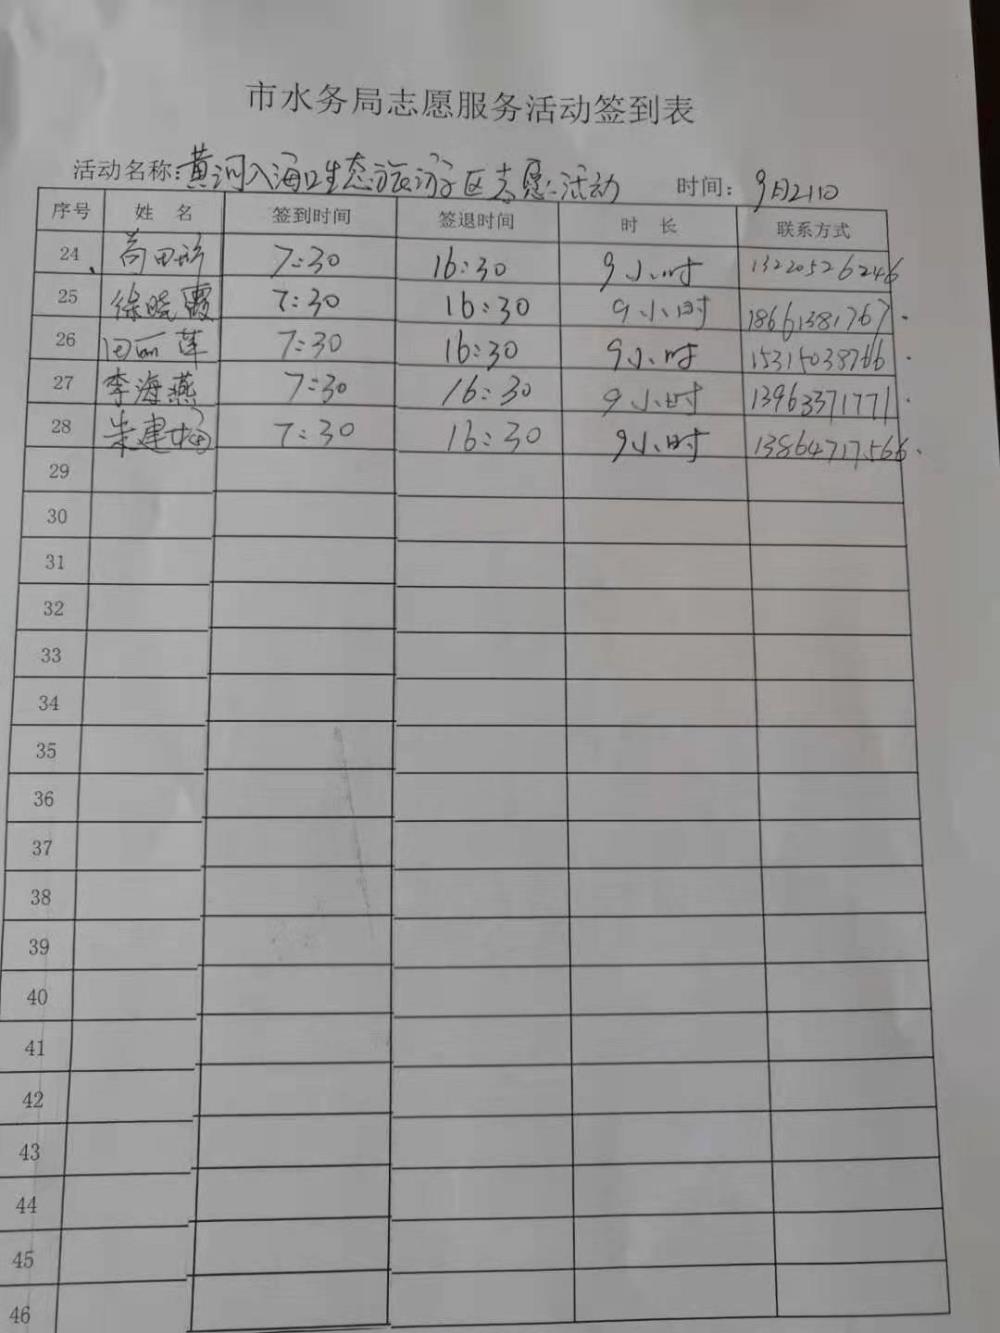 市水务局志愿服务活动签到表
活动名称:黄河入海口生态旅游区志愿活动 时间:9月21日
序号 姓 名 签到时间 签退时间 时 长 联系方式
24 7:30 16:30 9小时 13220526246
25 徐晓霞 7:30 16:30 9小时 18661381767
26 田丽莲 7:30 16:30 9小时 15315038766
27 李海燕 7:30 16:30 9小时 13963371771
28 朱建梅 7:30 16:30 9小时 13864717566
29
30
31
32
33
34
35
36
37
38
39
40
41
42
43
44
45
46